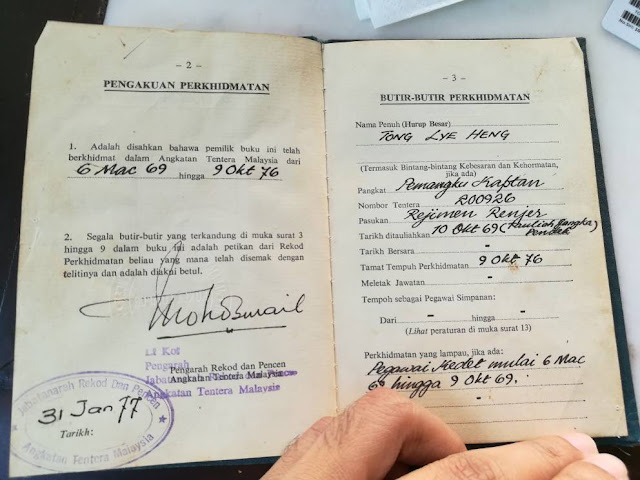 – 2 –
PENGAKUAN PERKHIDMATAN
1. Adalah disahkan bahawa pemilik buku ini telah
berkhidmat dalam Angkatan Tentera Malaysia dari
6 Mac 69 hingga 9 Okt 76
2. Segala butir-butir yang terkandung di muka surat 3
hingga 9 dalam buku ini adalah petikan dari Rekod
Perkhidmatan beliau yang mana telah disemak dengan
telitinya dan adalah diakui betul.
Lt Kol
Pengarah Rekod dan Pencen
Pengarah
Angkatan Tentera Malaysia
Jabatanarah Rekod Dan Pencen
Angkatan Tentera Malaysia
Jabatanarah Rekod Dan Pencen
31 Jan 77
Tarikh:
Angkatan Tentera Malaysia
– 3 –
BUTIR-BUTIR PERKHIDMATAN
Nama Penuh (Huruf Besar)
TONG LYE HENG
(Termasuk Bintang-bintang Kebesaran dan Kehormatan,
jika ada)
Pangkat Pemangku Kaptan
Nombor Tentera 200926
Pasukan Rejimen Renjer
Tarikh ditauliahkan 10 Okt 69 (Tauliah Jangka
Pendek)
Tarikh Bersara –
Tamat Tempuh Perkhidmatan 9 Okt 76
Meletak Jawatan –
Tempoh sebagai Pegawai Simpanan:
Dari – hingga –
(Lihat peraturan di muka surat 13)
Perkhidmatan yang lampau, jika ada:
Pegawai Kadet mulai 6 Mac
69 hingga 9 Okt 69.
–